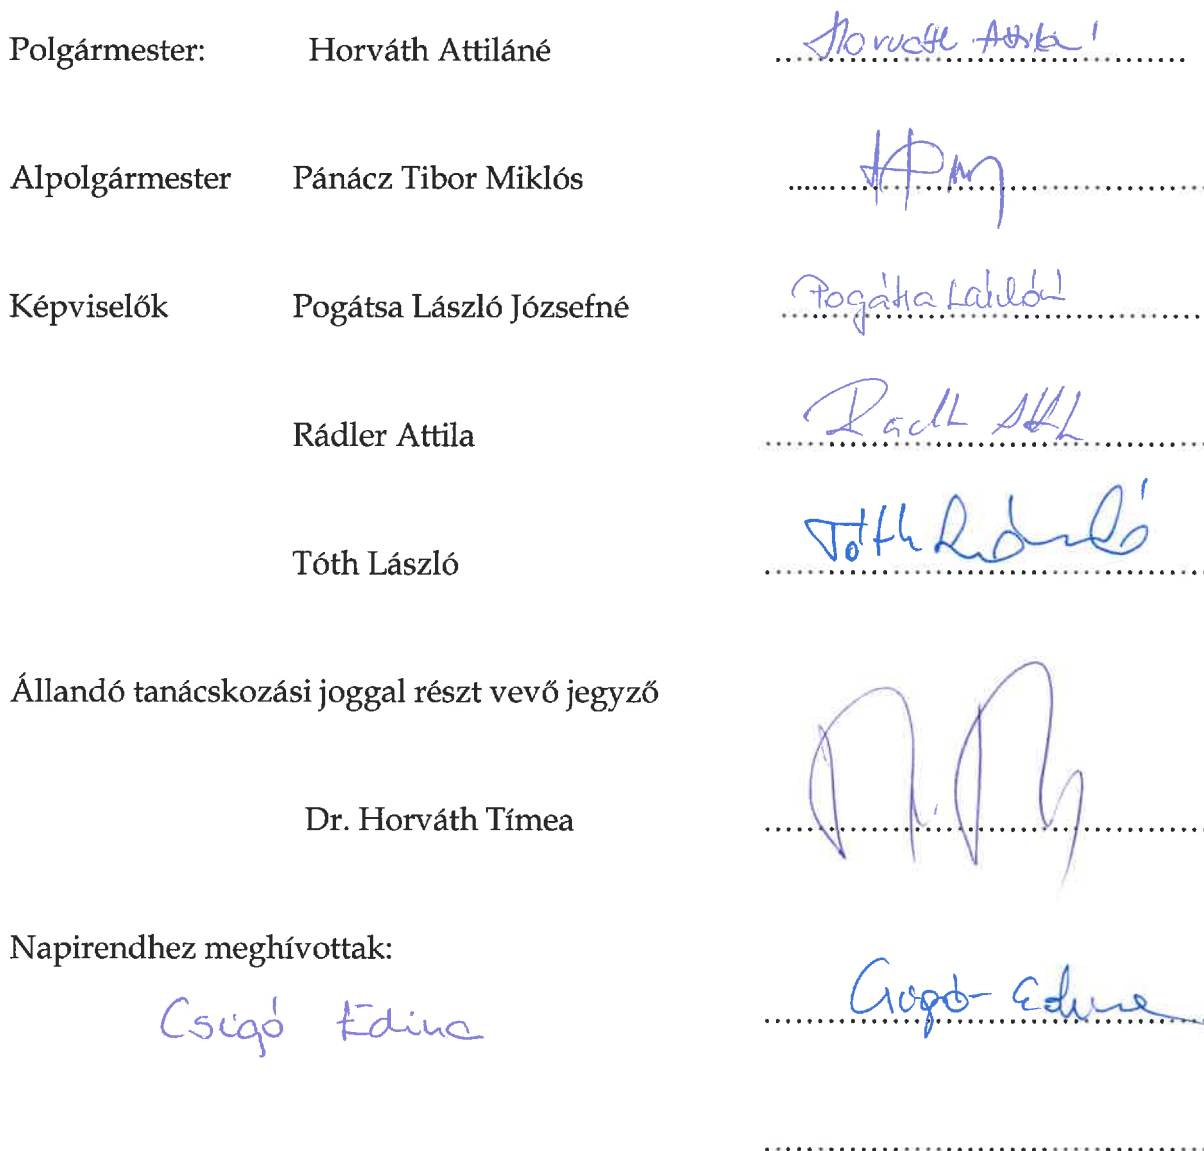 Polgármester: Horváth Attiláné Horváth Attiláné
Alpolgármester Pánácz Tibor Miklós
Képviselők Pogátsa László Józsefné Pogátsa Lászlóné
Rádler Attila
Tóth László Tóth László
Állandó tanácskozási joggal részt vevő jegyző
Dr. Horváth Tímea
Napirendhez meghívottak:
Csigó Edina Csigó Edina